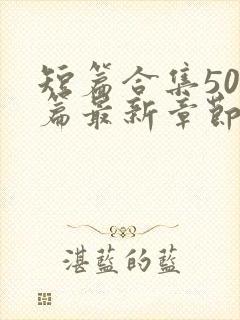 短篇合集50
篇最新章節
湛藍的藍